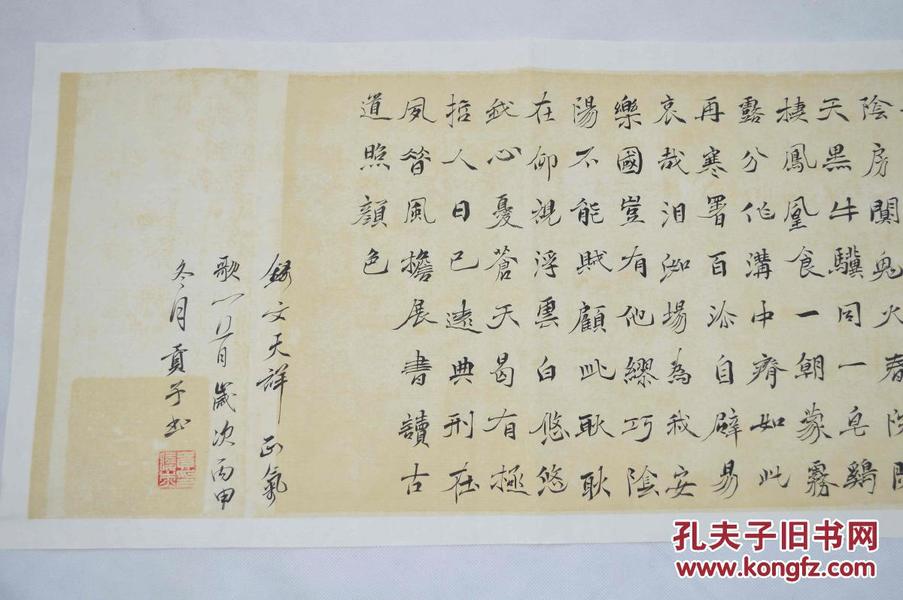 陰房闃鬼火春院
天黑牛驥同一皂鷄
棲鳳凰食一朝蒙霧
露分作溝中瘠如此
再寒署百沴自辟易
哀哉沮洳場為我安
樂國豈有他繆巧陰
陽不能賊顧此耿耿
在仰視浮雲白悠悠
我心憂蒼天曷有極
哲人日已遠典刑在
夙昔風檐展書讀古
道照顏色
錄文天祥正氣
歌 歲次丙申
冬月貢子書
孔夫子旧书网
www.kongfz.com